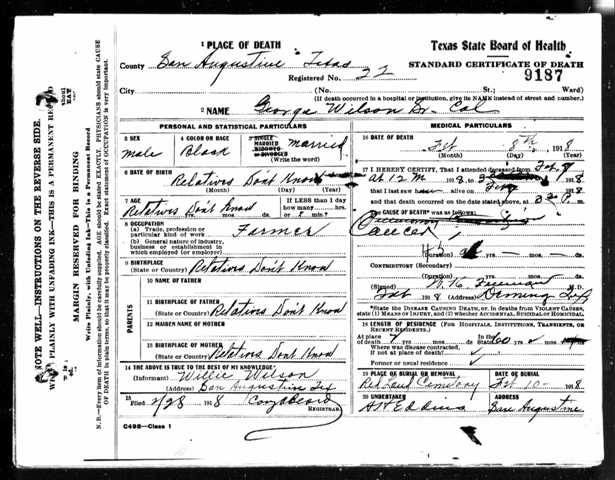 1 PLACE OF DEATH
County San Augustine Texas
Registered No. 22
City (No. St.; Ward)
(If death occurred in a hospital or institution, give its NAME instead of street and number.)
Texas State Board of Health
STANDARD CERTIFICATE OF DEATH
9187
2 NAME George Wilson Sr. Col
PERSONAL AND STATISTICAL PARTICULARS
3 SEX
male
4 COLOR OR RACE
Black
5 SINGLE
MARRIED
WIDOWED
or DIVORCED
Married
(Write the word)
6 DATE OF BIRTH
Relatives Don't Know
(Month) (Day) (Year)
7 AGE
Relatives Don't Know
yrs. mos. ds.
If LESS than 1 day
how many hrs.
or min.?
8 OCCUPATION
(a) Trade, profession or
particular kind of work
(b) General nature of industry,
business or establishment in
which employed (or employer)
Farmer
9 BIRTHPLACE
(State or Country) Relatives Don't Know
PARENTS
10 NAME OF FATHER
11 BIRTHPLACE OF FATHER
(State or Country) Relatives Don't Know
12 MAIDEN NAME OF MOTHER
13 BIRTHPLACE OF MOTHER
(State or Country) Relatives Don't Know
14 THE ABOVE IS TRUE TO THE BEST OF MY KNOWLEDGE
(Informant) Willie Wilson
(Address) San Augustine Tex
15
Filed 2/28 1918
REGISTRAR.
C49B—Class 1
MEDICAL PARTICULARS
16 DATE OF DEATH
Feb 8th, 1918
(Month) (Day) (Year)
17 I HEREBY CERTIFY, That I attended deceased from Feb 8
at 12 M 1918
that I last saw him alive on Feb 8 1918
and that death occurred on the date stated above, at 3 P m.
The CAUSE OF DEATH was as follows:
Cancer
(Duration) yrs. mos. ds.
CONTRIBUTORY (Secondary)
(Duration) yrs. mos. ds.
(Signed) W. H. Freeman M.D.
Feb 1918 (Address) Denning Tex
*State the DISEASE CAUSING DEATH, or, in deaths from VIOLENT CAUSES,
state (1) MEANS OF INJURY, and (2) whether ACCIDENTAL, SUICIDAL or HOMICIDAL.
18 LENGTH OF RESIDENCE (FOR HOSPITALS, INSTITUTIONS, TRANSIENTS, OR
RECENT RESIDENTS.)
At place of death yrs. mos. ds. In the State 60 yrs. mos. ds.
Where was disease contracted,
if not at place of death?
Former or usual residence
19 PLACE OF BURIAL OR REMOVAL
Red Land Cemetary
DATE OF BURIAL
Feb 10 1918
20 UNDERTAKER
ADDRESS
San Augustine
NOTE WELL—INSTRUCTIONS ON THE REVERSE SIDE.
WRITE PLAINLY, WITH UNFADING INK—THIS IS A PERMANENT RECORD
MARGIN RESERVED FOR BINDING
Write Plainly, with Unfading Ink—This is a Permanent Record
N. B.—Every item of information should be carefully supplied. AGE should be stated EXACTLY. PHYSICIANS should state CAUSE
OF DEATH in plain terms, so that it may be properly classified. Exact statement of OCCUPATION is very important.